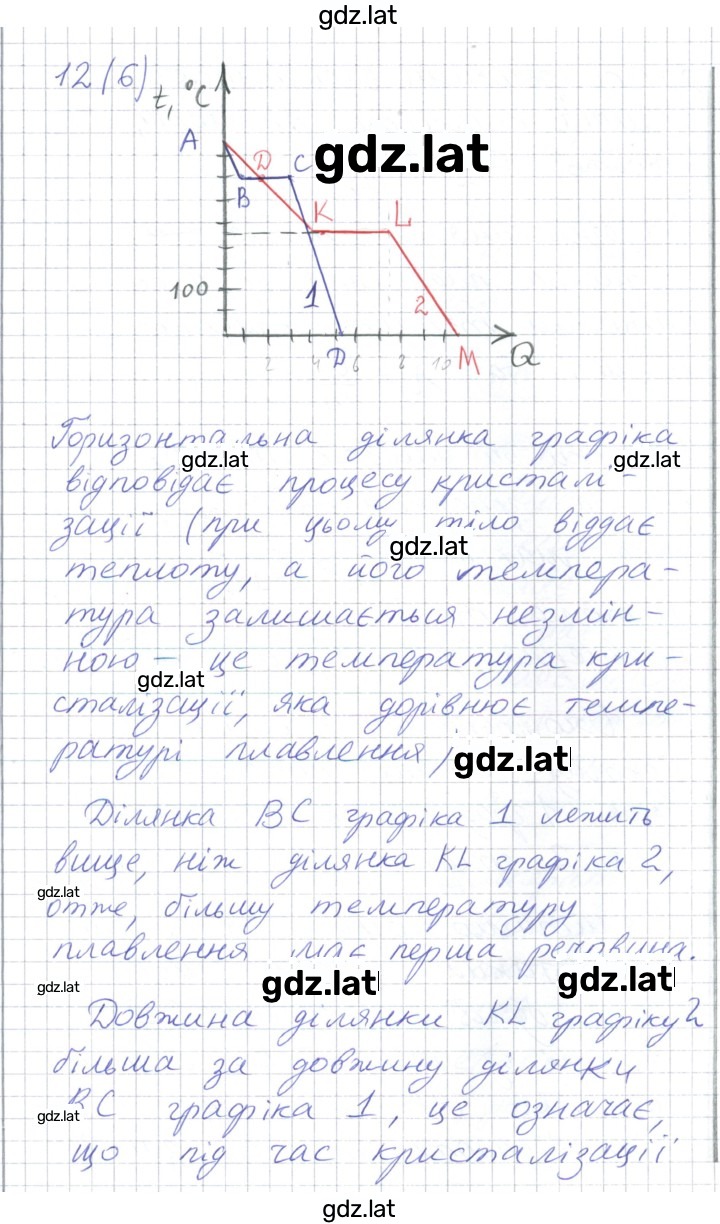 gdz.lat
12(6)
t, °C
A
D
C
gdz.lat
B
K
L
100
1
2
2
4
D
6
8
10
M
Q
Горизонтальна ділянка графіка
gdz.lat
gdz.lat
відповідає процесу кристалі-
зації (при цьому тіло віддає
gdz.lat
теплоту, а його темпера-
тура залишається незмін-
ною – це температура кри-
gdz.lat
сталізації, яка дорівнює темпе-
ратурі плавлення)
gdz.lat
Ділянка BC графіка 1 лежить
вище, ніж ділянка KL графіка 2,
gdz.lat
отже, більшу температуру
плавлення має перша речовина.
gdz.lat
gdz.lat
gdz.lat
Довжина ділянки KL графіку 2
більша за довжину ділянки
gdz.lat
BC графіка 1, це означає,
що під час кристалізації
gdz.lat